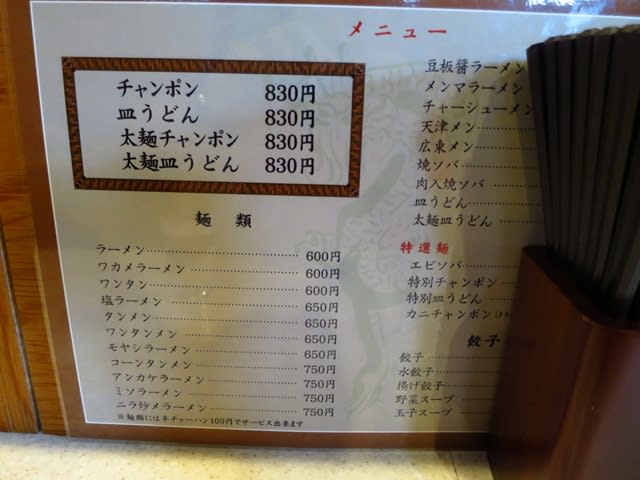 メニュー
チャンポン 830円
皿うどん 830円
太麺チャンポン 830円
太麺皿うどん 830円
麺類
ラーメン 600円
ワカメラーメン 600円
ワンタン 600円
塩ラーメン 650円
タンメン 650円
ワンタンメン 650円
モヤシラーメン 650円
コーンタンメン 750円
アンカケラーメン 750円
ミソラーメン 750円
ニラ炒メラーメン 750円
※麺類には半チャーハン100円でサービス出来ます
豆板醤ラーメン
メンマラーメン
チャーシューメン
天津メン
広東メン
焼ソバ
肉入焼ソバ
皿うどん
太麺皿うどん
特選麺
エビソバ
特別チャンポン
特別皿うどん
カニチャンポン
餃子
餃子
水餃子
揚げ餃子
野菜スープ
玉子スープ